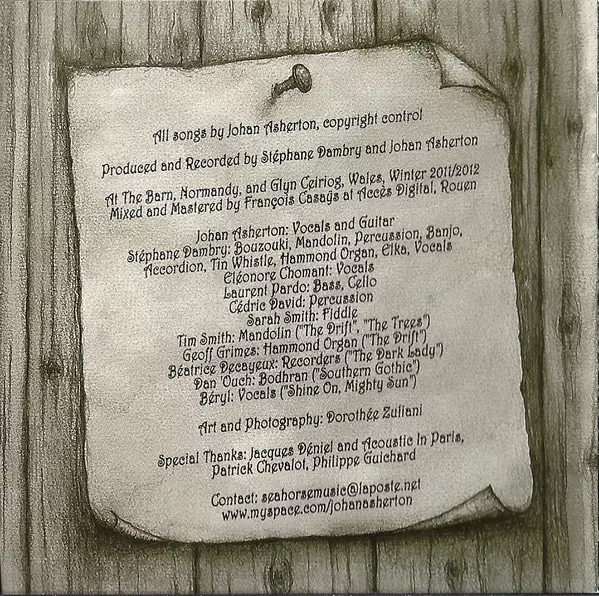 All songs by Johan Asherton, copyright control
Produced and Recorded by Stéphane Dambry and Johan Asherton
At The Barn, Normandy, and Glyn Ceiriog, Wales, Winter 2011/2012
Mixed and Mastered by François Casaÿs at Accès Digital, Rouen
Johan Asherton: Vocals and Guitar
Stéphane Dambry: Bouzouki, Mandolin, Percussion, Banjo,
Accordion, Tin Whistle, Hammond Organ, Elka, Vocals
Eléonore Chomant: Vocals
Laurent Pardo: Bass, Cello
Cédric David: Percussion
Sarah Smith: Fiddle
Tim Smith: Mandolin ("The Drift", "The Trees")
Geoff Grimes: Hammond Organ ("The Drift")
Béatrice Decayeux: Recorders ("The Dark Lady")
Dan 'Ouch: Bodhran ("Southern Gothic")
Béryl: Vocals ("Shine On, Mighty Sun")
Art and Photography: Dorothée Zuliani
Special Thanks: Jacques Déniel and Acoustic In Paris,
Patrick Chevalot, Philippe Guichard
Contact: seahorsemusic@laposte.net
www.myspace.com/johanasherton